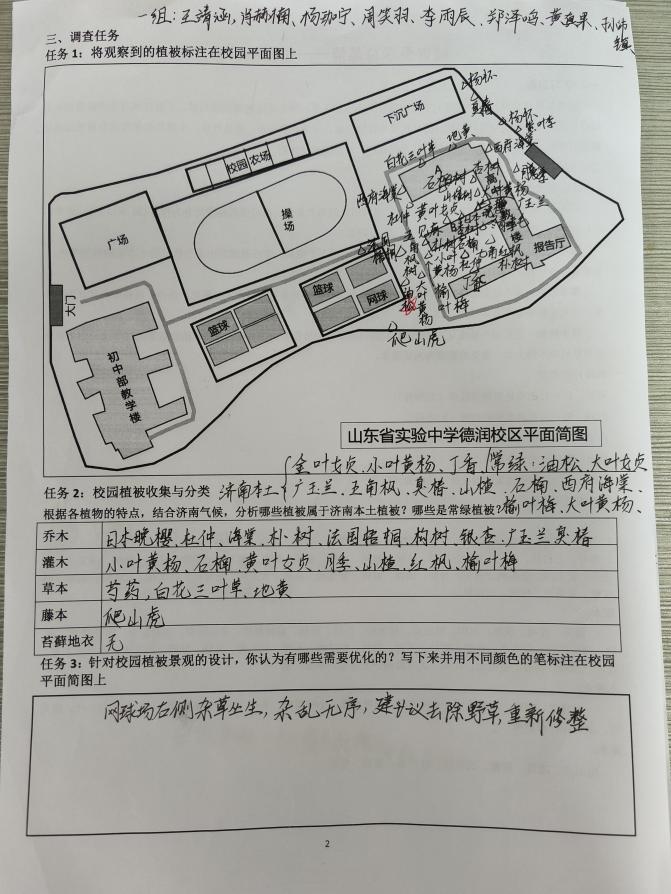 一组：王靖涵、肖赫楠、杨珈宁、周笑羽、李雨辰、郑泽鸣、黄真果、孙
三、调查任务
任务1：将观察到的植被标注在校园平面图上
下沉广场
杨怀
臭椿
校园农场
地黄
白花三叶草
杨怀
西府海棠
广场
操场
西府海棠
石楠
杜仲
黄叶女贞
大叶黄杨
广玉兰
教学楼
报告厅
朴树
红枫
丁香
榆叶梅
大叶黄杨
爬山虎
大门
篮球
篮球
网球
初中部教学楼
山东省实验中学德润校区平面简图
金叶女贞、小叶黄杨、丁香 常绿：油松、大叶女贞
任务2：校园植被收集与分类 济南本土 广玉兰、五角枫、臭椿、山楂、石楠、西府海棠、
根据各植物的特点，结合济南气候，分析哪些植被属于济南本土植被？哪些是常绿植被？榆叶梅、大叶黄杨、
乔木 日本晚樱、杜仲、海棠、朴树、法国梧桐、构树、银杏、广玉兰臭椿
灌木 小叶黄杨、石楠、黄叶女贞、月季、山楂、红枫、榆叶梅
草本 芍药，白花三叶草、地黄
藤本 爬山虎
苔藓地衣 无
任务3：针对校园植被景观的设计，你认为有哪些需要优化的？写下来并用不同颜色的笔标注在校园
平面简图上
网球场右侧杂草丛生，杂乱无序，建议去除野草，重新修整
2